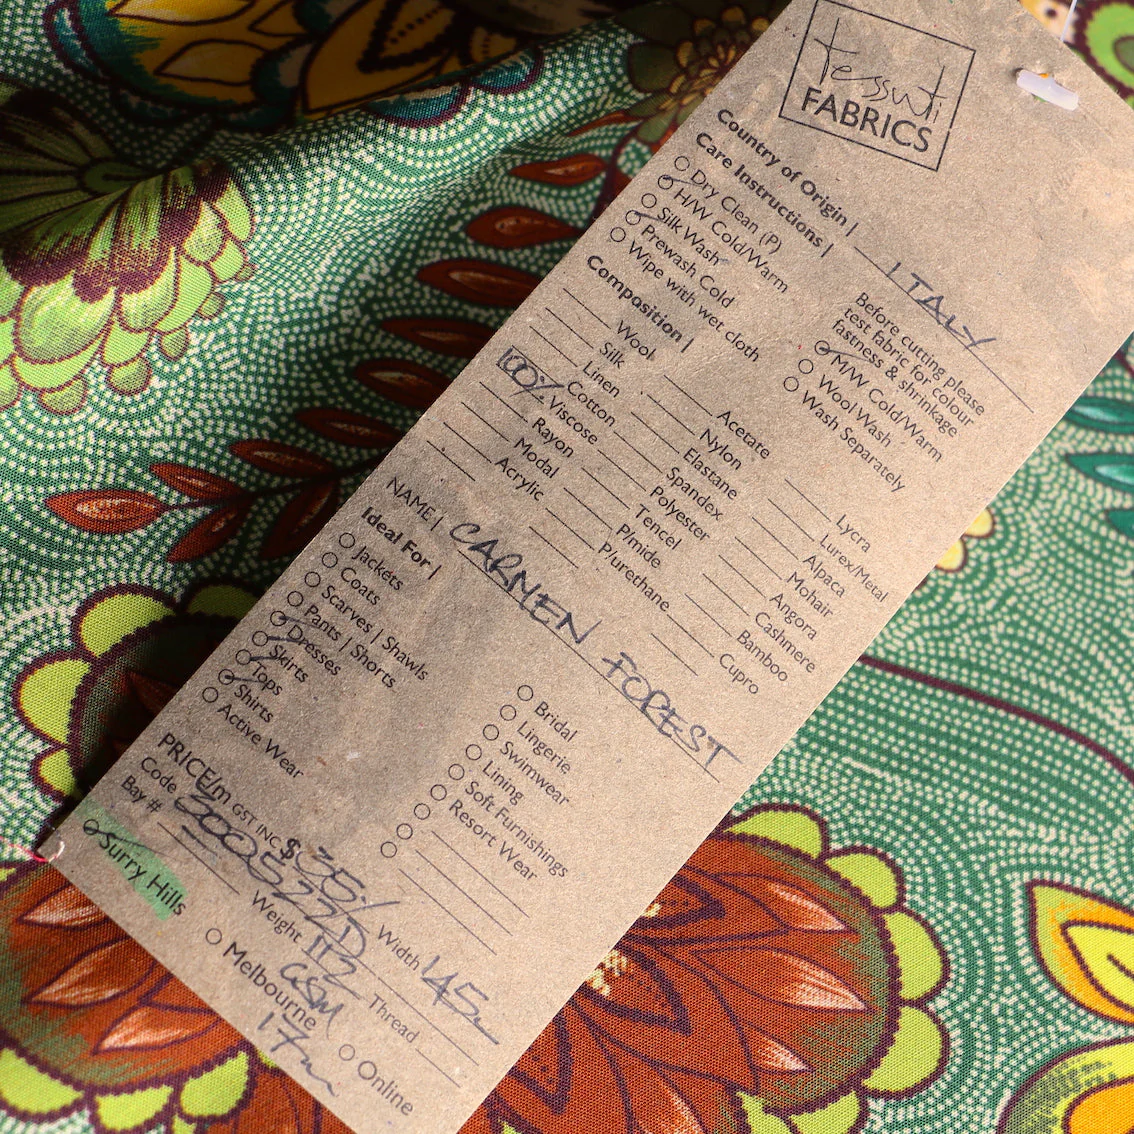 tessuti
FABRICS
Country of Origin | ITALY
Care Instructions |
Dry Clean (P)
H/W Cold/Warm
Silk Wash
Prewash Cold
Wipe with wet cloth
Before cutting please
test fabric for colour
fastness & shrinkage
M/W Cold/Warm
Wool Wash
Wash Separately
Composition |
Wool
Silk
Linen
100% Cotton
Viscose
Rayon
Modal
Acrylic
Acetate
Nylon
Elastane
Spandex
Polyester
Tencel
P/mide
P/urethane
Lycra
Lurex/Metal
Alpaca
Mohair
Angora
Cashmere
Bamboo
Cupro
NAME | CARMEN FOREST
Ideal For |
Jackets
Coats
Scarves | Shawls
Pants | Shorts
Dresses
Skirts
Tops
Shirts
Active Wear
Bridal
Lingerie
Swimwear
Lining
Soft Furnishings
Resort Wear
PRICE/m GST INC $35
Code 300527D Width 145
Bay # Weight 112 GSM Thread
Surry Hills
Melbourne
Online
17m